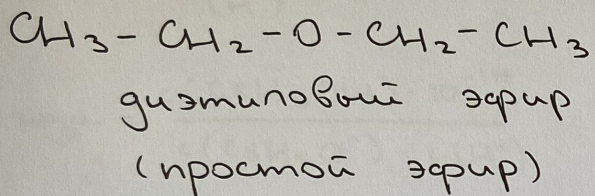 CH₃ - CH₂ - O - CH₂ - CH₃
диэтиловый эфир
(простой эфир)